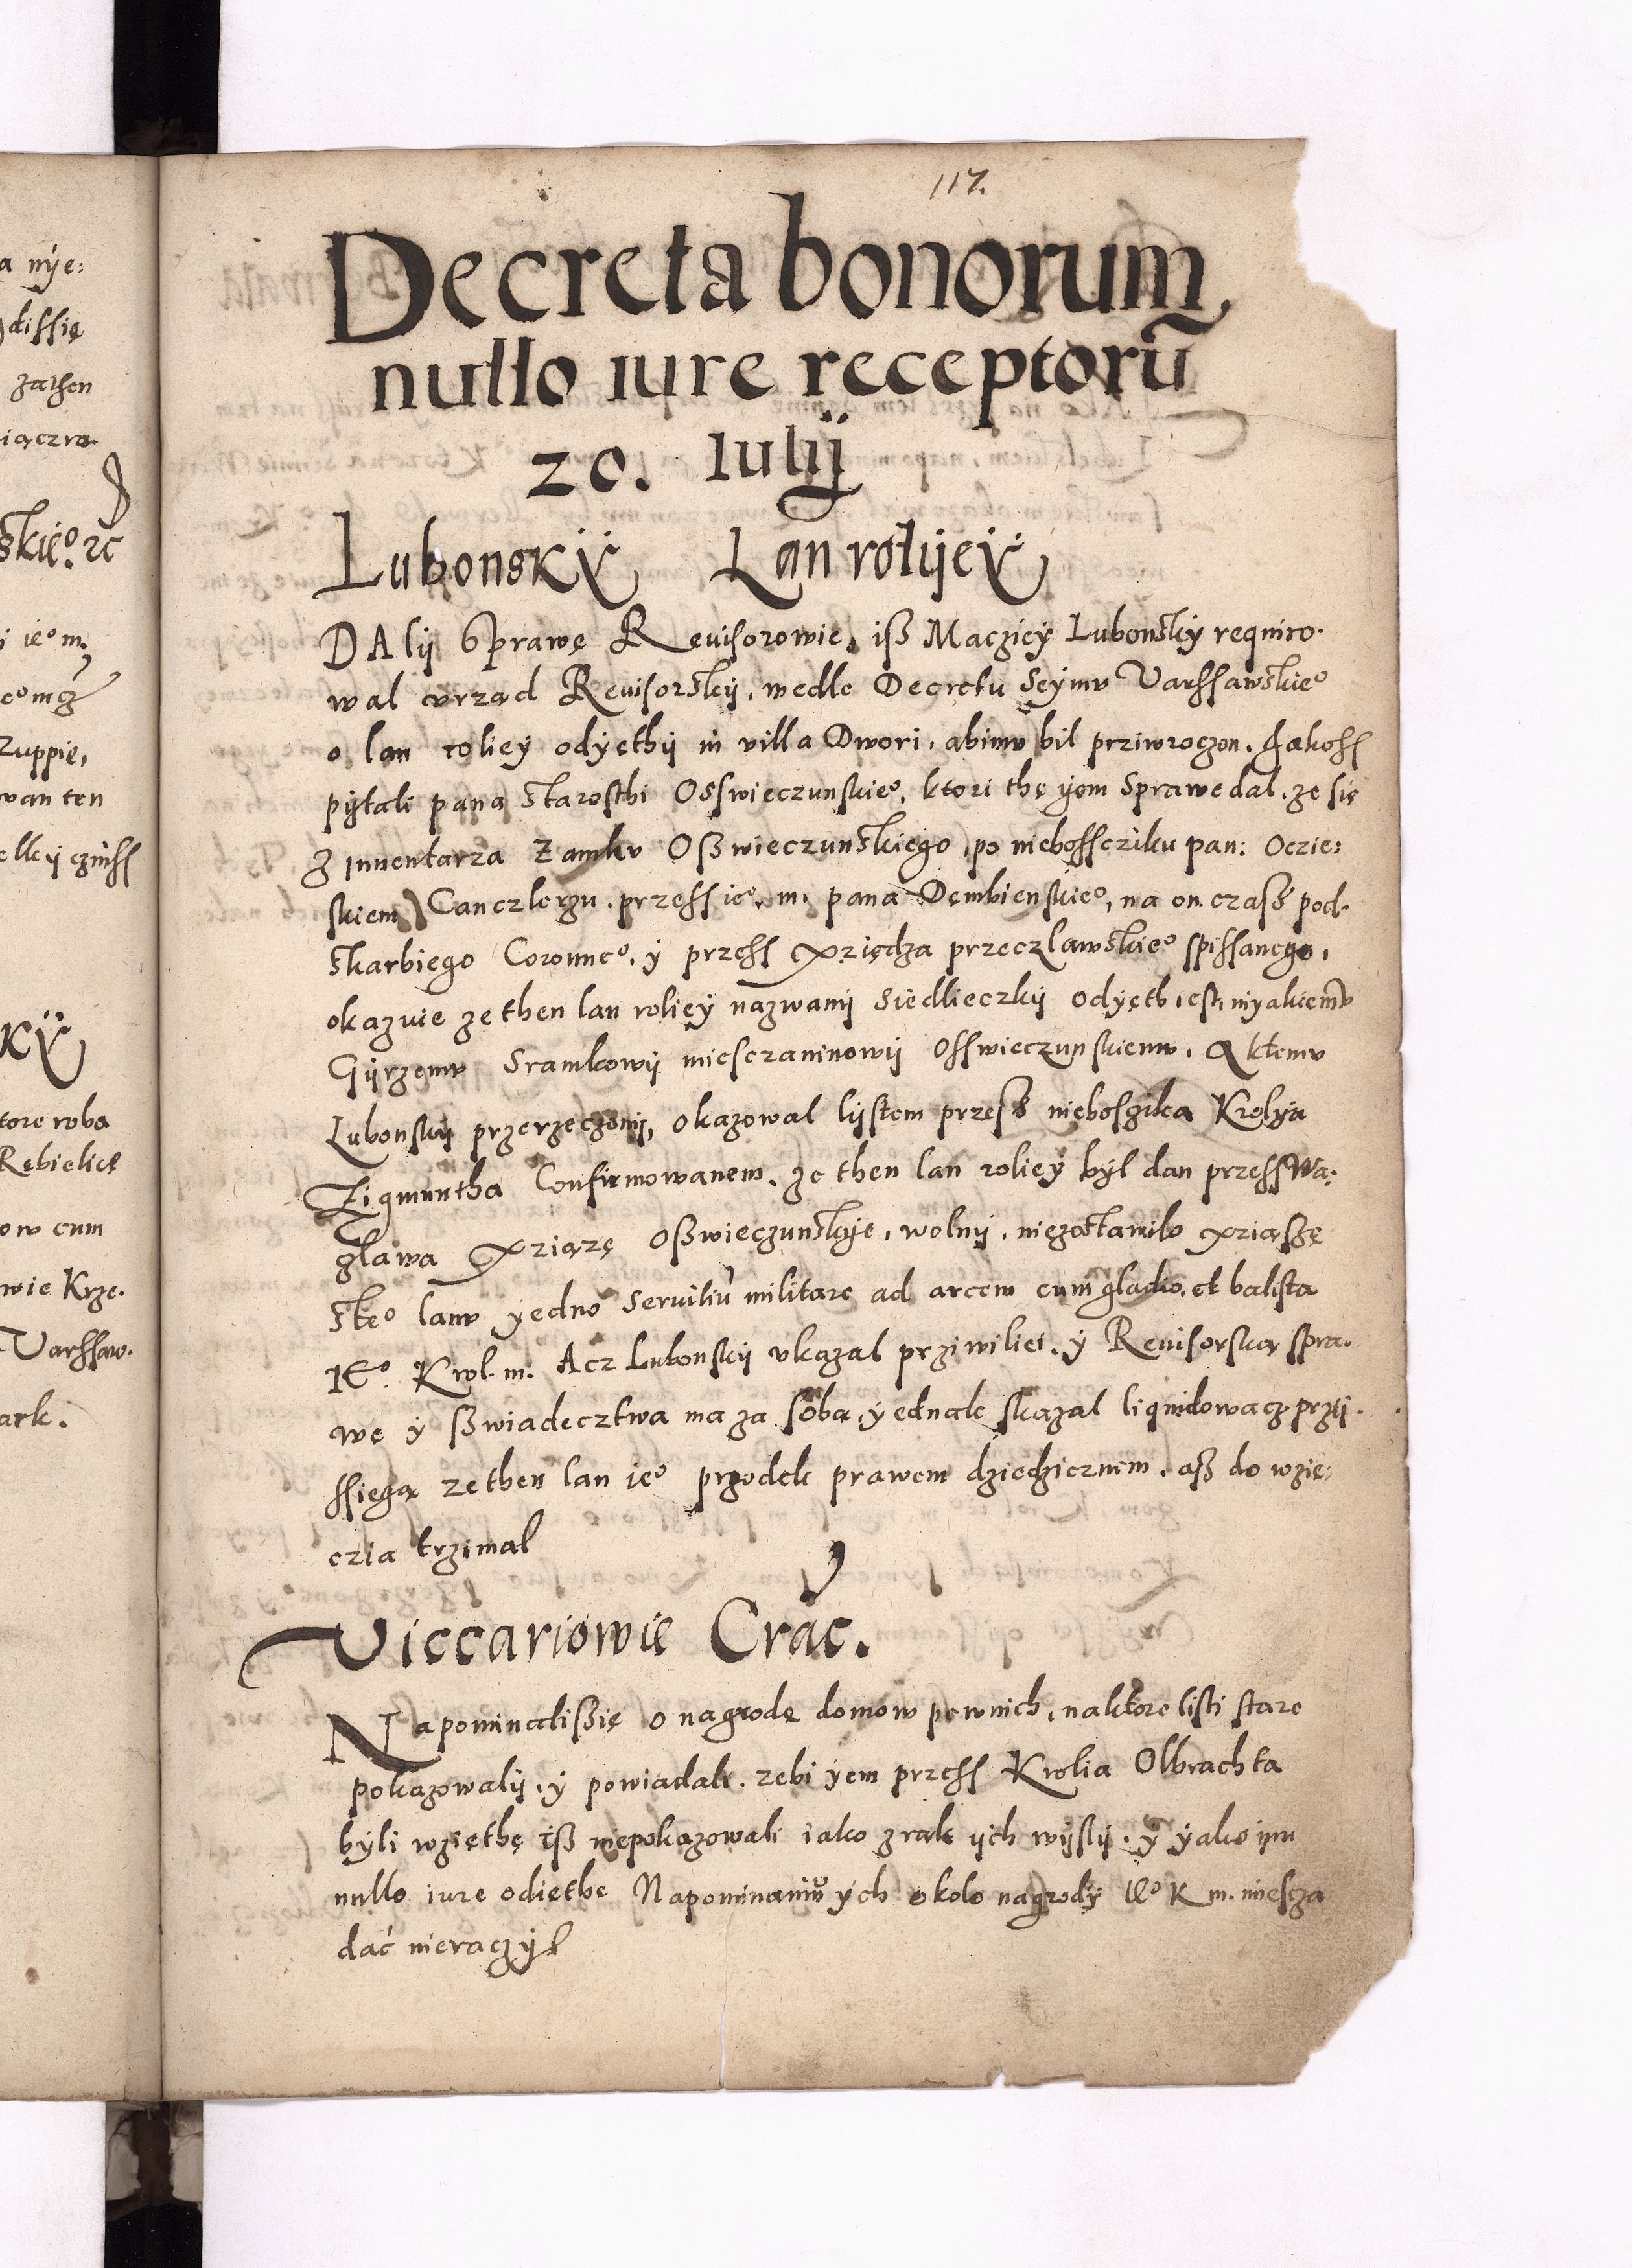 117.
Decreta bonorum
nullo iure receptorũ
20. Iulij
Lubonskÿ Lan rolijeÿ
DAlij Sprawę Revisorowie, iß Macziey Lubonskÿ requiro-
wal vrzad Revisorskij, wedle Decretu Seÿmv Varssawskieº
o lan roliey odÿethij in villa Dwori, abimv bil prziwroczon. Jakoss
pÿtali pana Starosthi Osswieczunskieº, ktori thę ÿom Sprawe dal. ze się
z Inuentarza Zamkv Oßwieczunskiego, po nieboßcziku pan: Oczie:
skiem Canczlerzu. przess ieº. m. pana Dembienskieº, na on czasß pod-
skarbiego Coronneº. ÿ przess xziędza przeczlawskieº spissanego,
okazuie ze then lan rolieÿ nazwanij Siedlieczkij odÿęth iest, niyakiemv
Gÿrzemv Sramkowij miesczaninowij Osswieczunskiemv. A ktemv
Lubonskij przerzeczonij, okazowal lijstem przesß nieboszika Krolÿa
Zigmuntha Confirmowanem. ze then lan roliey bÿl dan przess Wa-
glawa xziązę Oßwieczunskÿe, wolnij, niezostawilo xziąszę
stęº lanv ÿedno Seruitiũ militare ad arcem cum gladio, et balista
Ieº. Krol. m. Acz Lubonskij vkazal prziwiliei. ÿ Revisorską spra-
wę ÿ ßwiadecztwa ma za sobą, ÿednak skazal liquidowacz przij-
ssięgą ze then lan ieº przodek prawem dziedzicznem. aß do wzię:
czia trzimal
Viccariowie Crac.
Napominalißię o nagrodę domow pewnich, na ktore listi stare
pokazowalij, ÿ powiadali. zebi ÿem przess Krolia Olbrachta
bÿli wziethę iß niepokazowali iako z rak ijch wÿslij. ÿ ÿako im
nullo iure odiethe Napominaniv ÿch około nagrodÿ Ieº K m. miescza
dać nieraczÿł
a nÿe:
dissię
zathen
iączra-
skięº. rc
i ieº m.
Zuppie,
wan ten
elkij cziniss
kÿ
tore roba
Rębielicę
ow cum
wie Krze-
Varssaw-
ark.